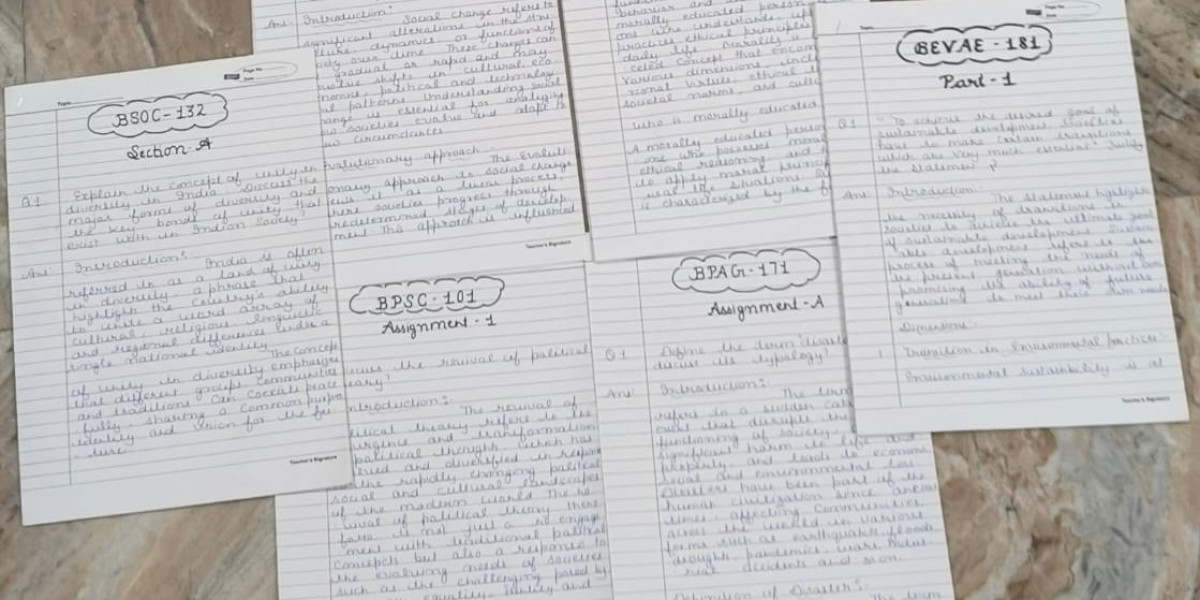 Ans: Introduction:
Social change refers to
significant alterations in the
dynamics or functions of
over time. These changes can
gradual or rapid and may
shifts in cultural, eco
nomic, political and technologi
al patterns. Understanding social
is essential for analyzing
societies evolve and adapt to
circumstances.
volutionary approach:
The Evoluti
onary approach to social change
it as a linear process,
societies progress through
redetermined stages of develop
ment. This approach is influented
Teacher's Signature
behavior and
morally educated person
one who understands,
practices ethical principles
daily life. Morality is
concept that encom
various dimensions,
ethical
societal norms, and
who is morally educated
A morally educated person
one who possesses moral
ethical reasoning and
to apply moral princip
real life situations
is characterized by the
Page No.
Date
BEVAE - 181
Part - 1
Q.1
"To achieve the desired goals of
sustainable development societies
have to make certain transitions
which are very much essential" Justify
the statement?
Ans:
Introduction:
The statement highlights
the necessity of transitions in
societies to achieve the ultimate goal
of sustainable development. Sustain
able development refers to the
process of meeting the needs of
the present generation without com
promising the ability of future
generations to meet their own needs
Dimensions:
1
Transition in Environmental practices:
Environmental sustainability is at
Teacher's Signature
Page No.
Date
BSOC - 132
Section - A
Q.1
Explain the concept of unity in
diversity in India. Discuss the
major forms of diversity and
the key bonds of unity that
exist with in Indian Society?
Ans:
Introduction:
India is often
referred to as a land of unity
in diversity, a phrase that
highlight the country's ability
to unite a array of
cultural, religious, linguistic
and regional differences under a
single national identity.
The concept
of unity in diversity emphasizes
that different groups, communities
and traditions can coexist peace
fully, sharing a common purpose
identity and vision for the fu
ture
Teacher's Signature
BPSC - 101
Assignment - 1
the revival of political
ntroduction:
The revival of
litical theory refers to the
urgence and transformation
political thought which has
and diversified in respon
the rapidly changing political
social and cultural landscapes
of the modern world. The re
vival of political theory there
fore is not just a re engage
ment with traditional political
concepts but also a response to
the evolving needs of societies
such as the challenging posed by
equality, identity and
BPAG - 171
Assignment - A
Q.1
Define the term 'disaste
discuss its typology?
Ans:
Introduction:
The term
refers to a sudden cal
event that disrupts the
functioning of society,
significant harm to life and
property, and leads to economi
social and environmental loss
Disasters have been part of the
human civilization since ancien
times affecting communities
across the world in various
forms such as earthquakes, floods
droughts, pandemics, wars, indus
trial accidents and soon.
Definition of Disaster:
The term